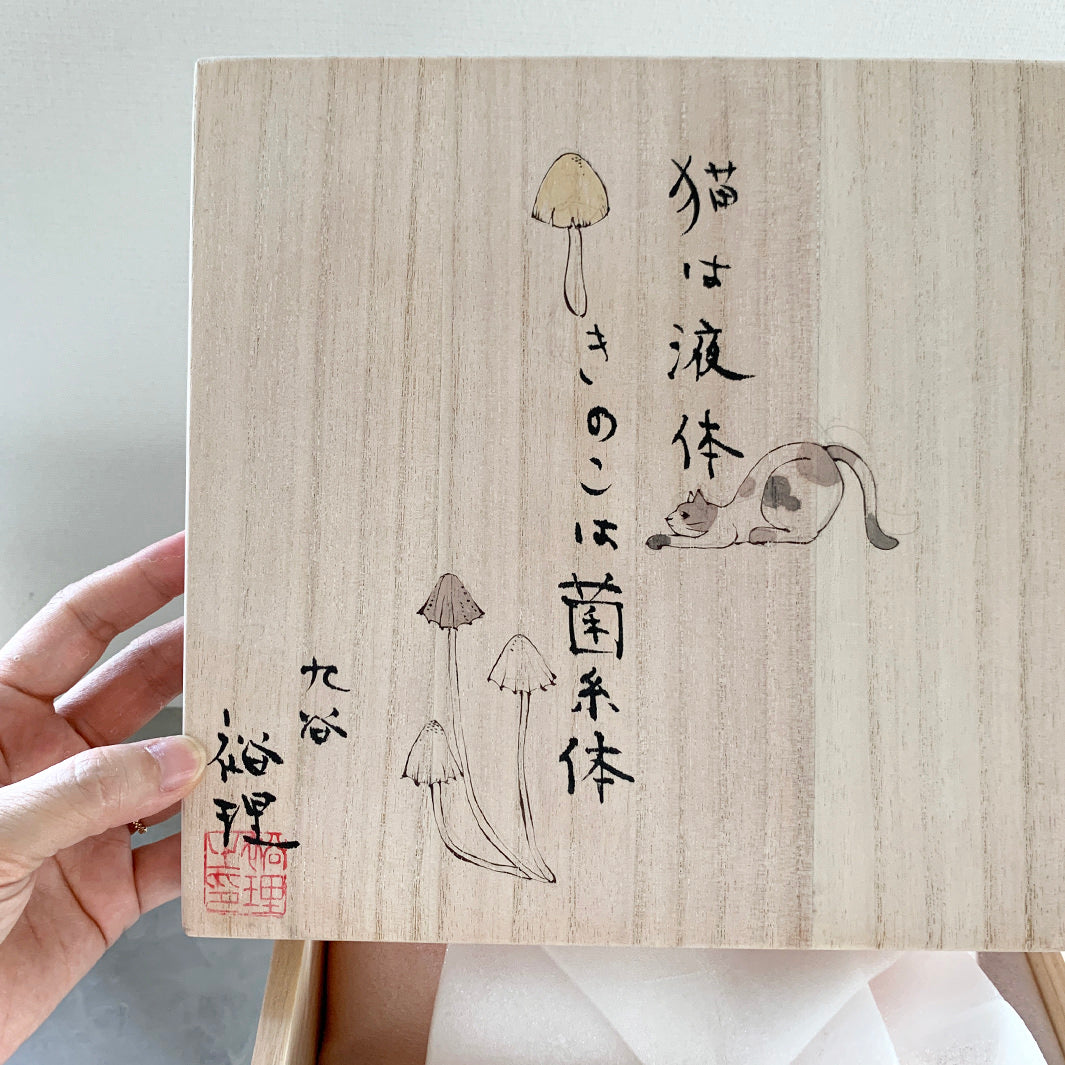 猫は液体
きのこは菌糸体
九谷
裕理
裕理